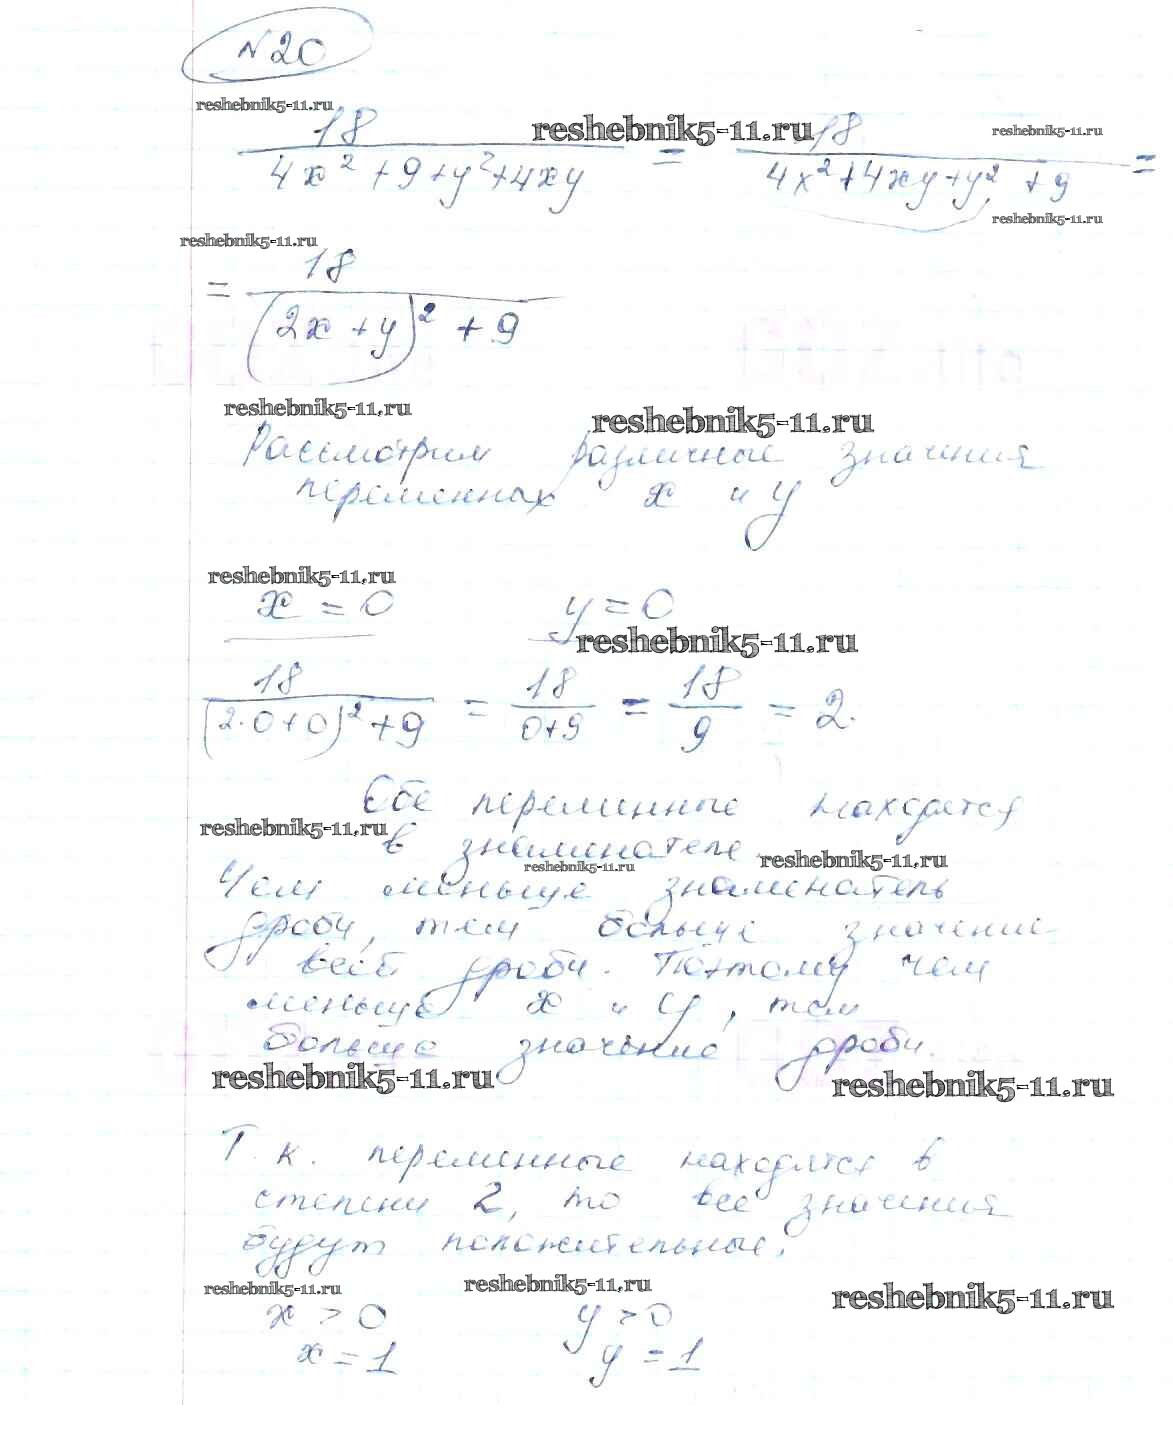 N20
reshebnik5-11.ru
18 / (4x² + 9 + y² + 4xy) = 18 / (4x² + 4xy + y² + 9) =
reshebnik5-11.ru
reshebnik5-11.ru
reshebnik5-11.ru
reshebnik5-11.ru
= 18 / ((2x + y)² + 9)
reshebnik5-11.ru
reshebnik5-11.ru
Рассмотрим различные значения
переменных x и y
reshebnik5-11.ru
x = 0 y = 0
reshebnik5-11.ru
18 / ((2·0+0)² + 9) = 18 / (0+9) = 18 / 9 = 2.
Обе переменные находятся
reshebnik5-11.ru
в знаменателе.
reshebnik5-11.ru
reshebnik5-11.ru
Чем меньше знаменатель
дроби, тем больше значение
всей дроби. Поэтому чем
меньше x и y, тем
больше значение дроби.
reshebnik5-11.ru
reshebnik5-11.ru
Т.к. переменные находятся в
степени 2, то все значения
будут положительные.
reshebnik5-11.ru
reshebnik5-11.ru
reshebnik5-11.ru
x > 0 y > 0
x = 1 y = 1